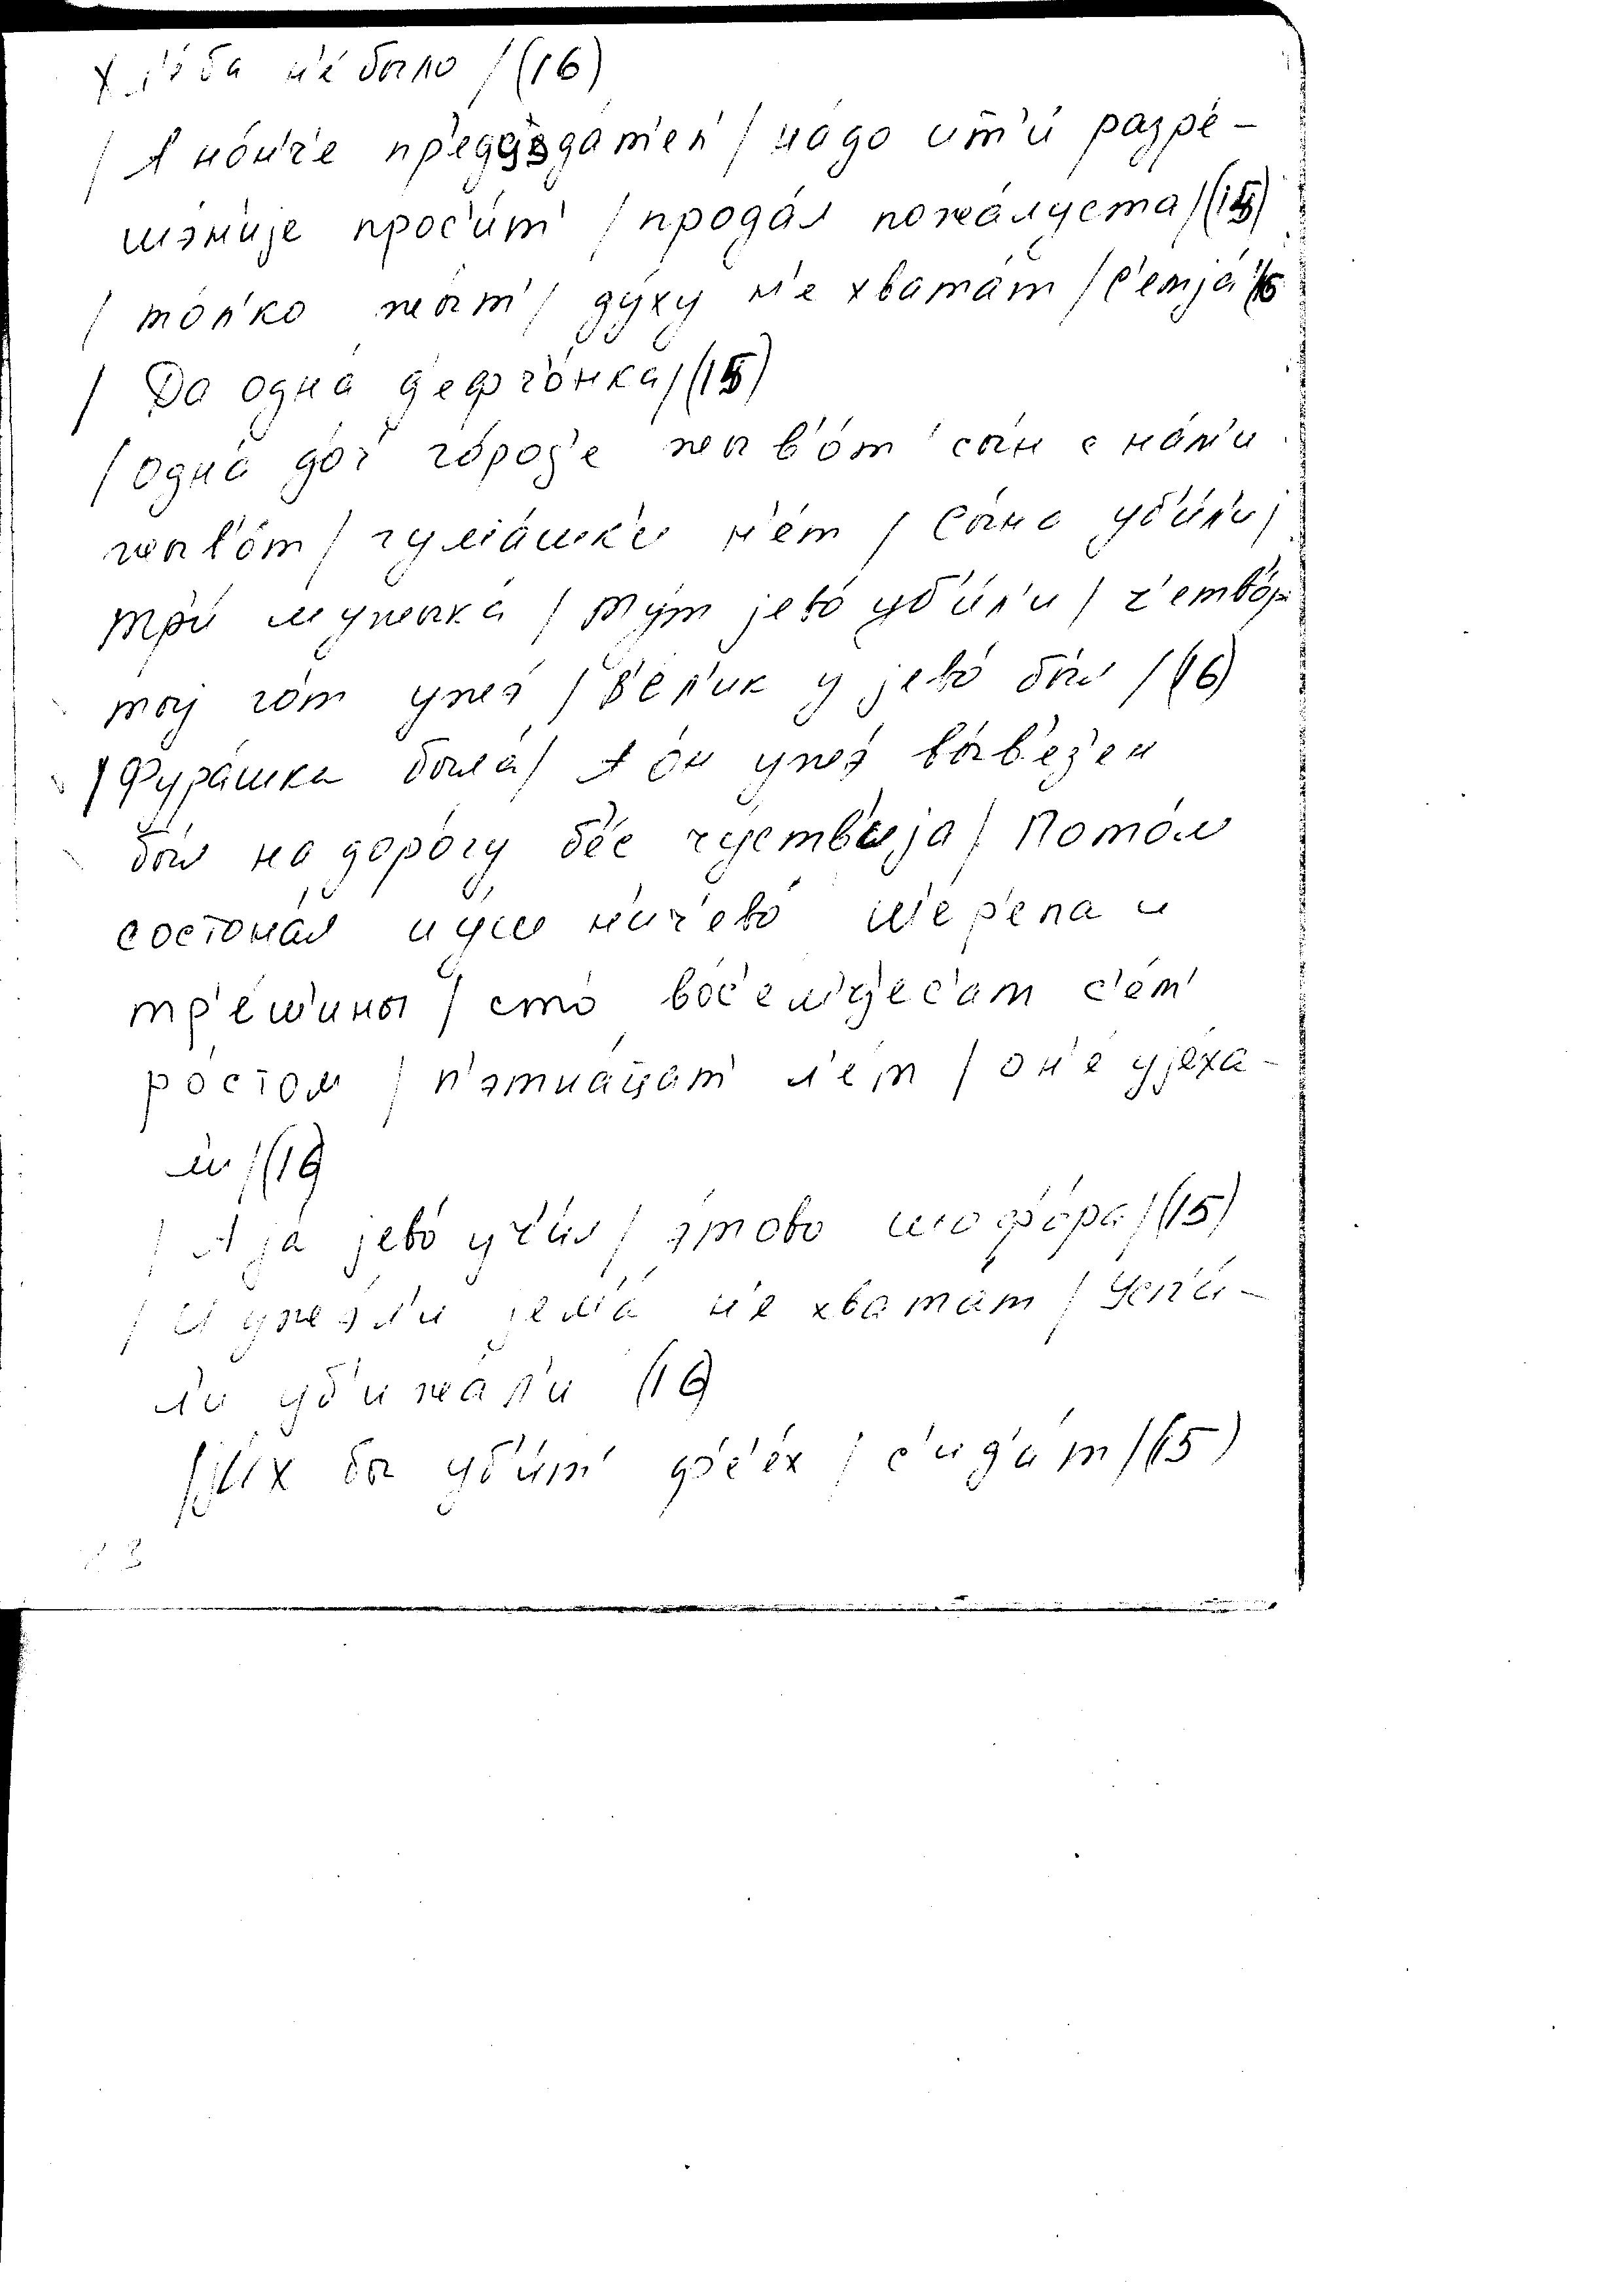 хл'э́ба н'е́ было /(16)
/ А но́н'ч'е пр'едс'эда́т'ел' / на́до ит'и́ разре-
шэ́н'ијe прос'и́т' / прода́л пожа́луста /(15)
/ то́л'ко жы́т' / ду́ху н'е хвата́т / С'емја́ (16
/ Да одна́ д'ефч'о́нка /(15)
/ одна́ до́ч' го́род'е жыв'о́т сы́н с на́м'и
жыв'о́т / гума́шк'и н'е́т / Сы́на уб'и́л'и /
тр'и́ мужыка́ / ту́т јево́ уб'и́л'и / ч'етв'о́р
тој го́т ужэ́ / в'е́л'ик у јево́ бы́л /(16)
/ Фура́шка была́ / А о́н ужэ́ вы́в'ез'ен
бы́л на доро́гу бе́с чу́ств'иja / Пото́м
состона́л и у́ш н'ич'ево́ ш'е́р'епа и
тр'е́ш'ины / сто́ во́с'ем'д'ес'ат с'е́м'
ро́стом / п'этна́цат' л'е́т / он'е́ ује́ха-
л'и /(16)
/ А ја́ јево́ уч'и́л / э́тово шофо́ра /(15)
/ И ужэ́л'и јему́ н'е хвата́т / Усп'и́-
л'и уб'ижа́л'и (16)
/ jи́х бы уб'и́т' фс'е́х / с'ид'а́т /(15)